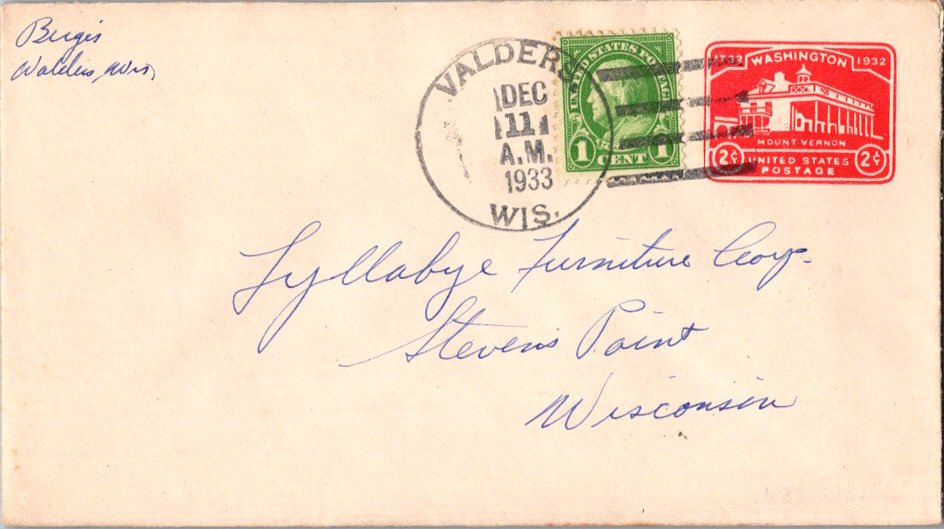 Bergis
Valders, Wis.
VALDERS
DEC
11
A.M.
1933
WIS.
UNITED STATES POSTAGE
1 CENT 1
WASHINGTON 1932
MOUNT VERNON
2¢ UNITED STATES 2¢
POSTAGE
Lyllabye Furniture Corp.
Stevens Point
Wisconsin